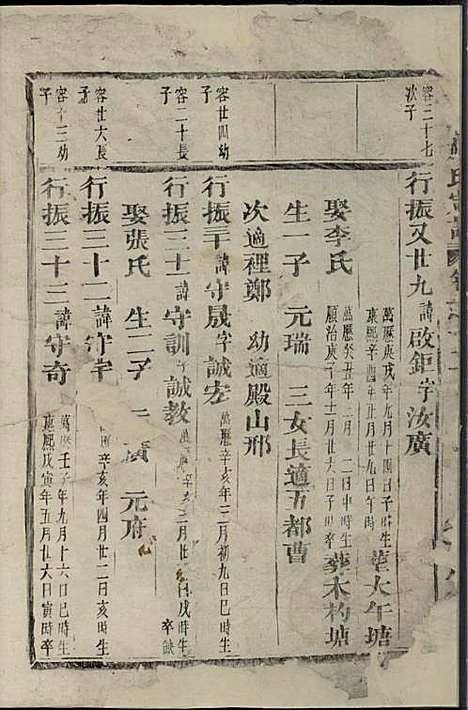 容三十七次子
行振又廿九諱啟鉅字汝廣
萬曆庚戌年九月十四日子時生
康熙辛酉年廿月廿九日午時
葬大午塘
娶李氏
萬曆癸丑年二月 二日中時生
順治庚子年十二月廿六日子時卒
葬木杓塘
生一子 元瑞 三女長適五都曹
次適裡鄭 幼適殿山邢
容廿四幼子
行振三十諱守晟字誠宏
萬曆辛亥年二月初九日巳時生
容二十長子
行振三十一諱守訓字誠教
萬曆辛亥 月廿 日戌時生
卒缺
娶張氏 生二子 元府
容廿六長子
行振三十二諱守宇
辛亥年四月廿二日亥時生
容十三幼子
行振三十三諱守奇
萬曆壬子年九月十六日巳時生
康熙戊寅年五月廿六日寅時卒